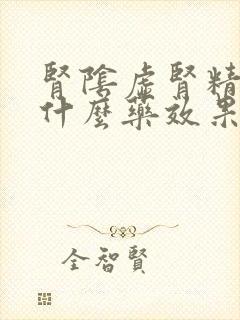 腎陰虛腎精
什麼藥效果
全智賢